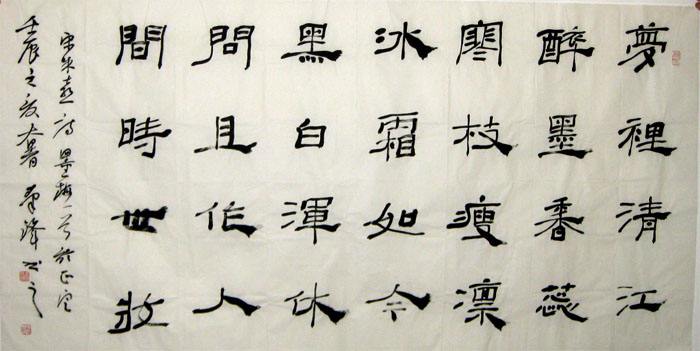 夢裡清江
醉墨香蕊
寒枝瘦凜
冰霜如今
黑白渾休
問且作人
間時世妝
宋朱熹詩墨梅一首於正定
壬辰之夏大暑